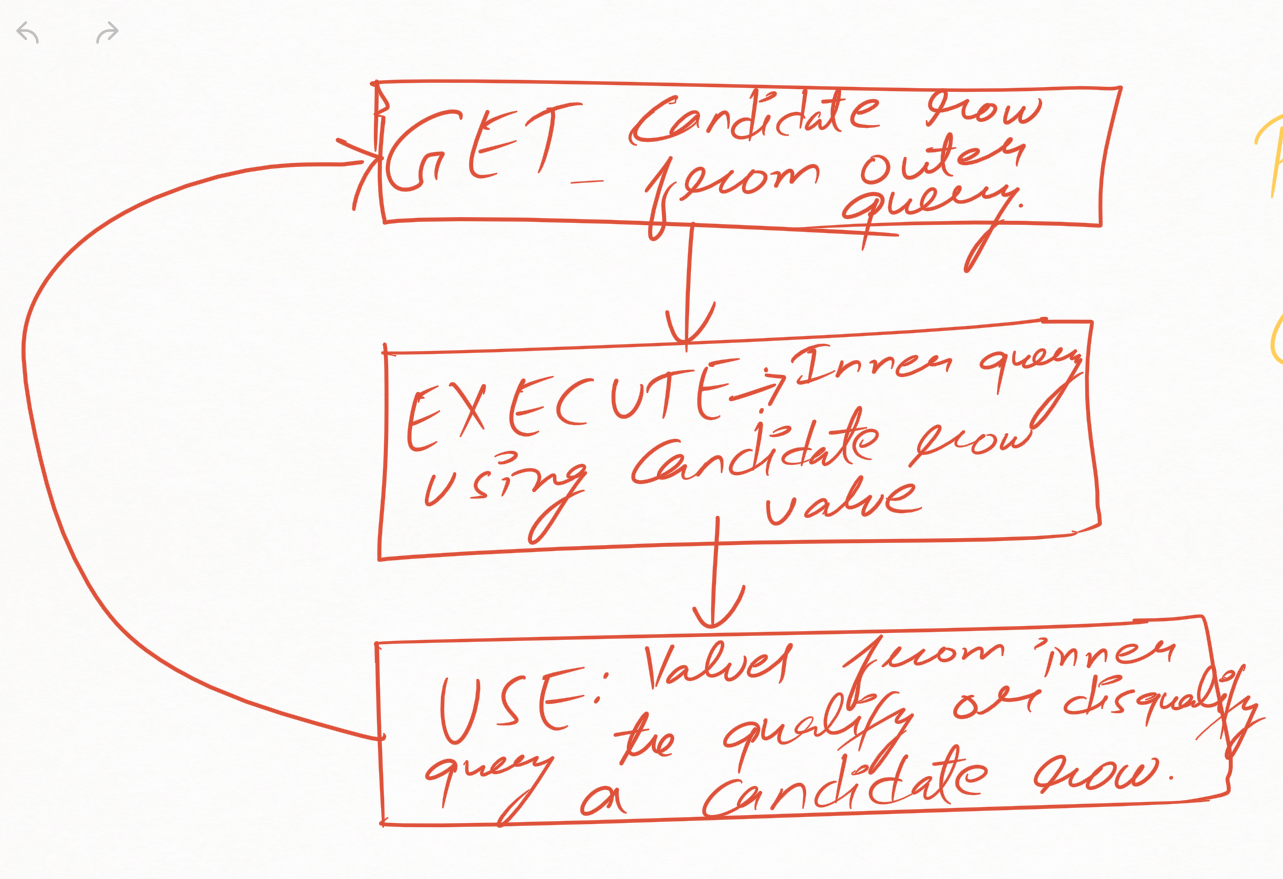 GET_ Candidate row
from outer
query.
EXECUTE → Inner query
using Candidate row
value
USE: Values from inner
query the qualify or disqualify
a candidate row.